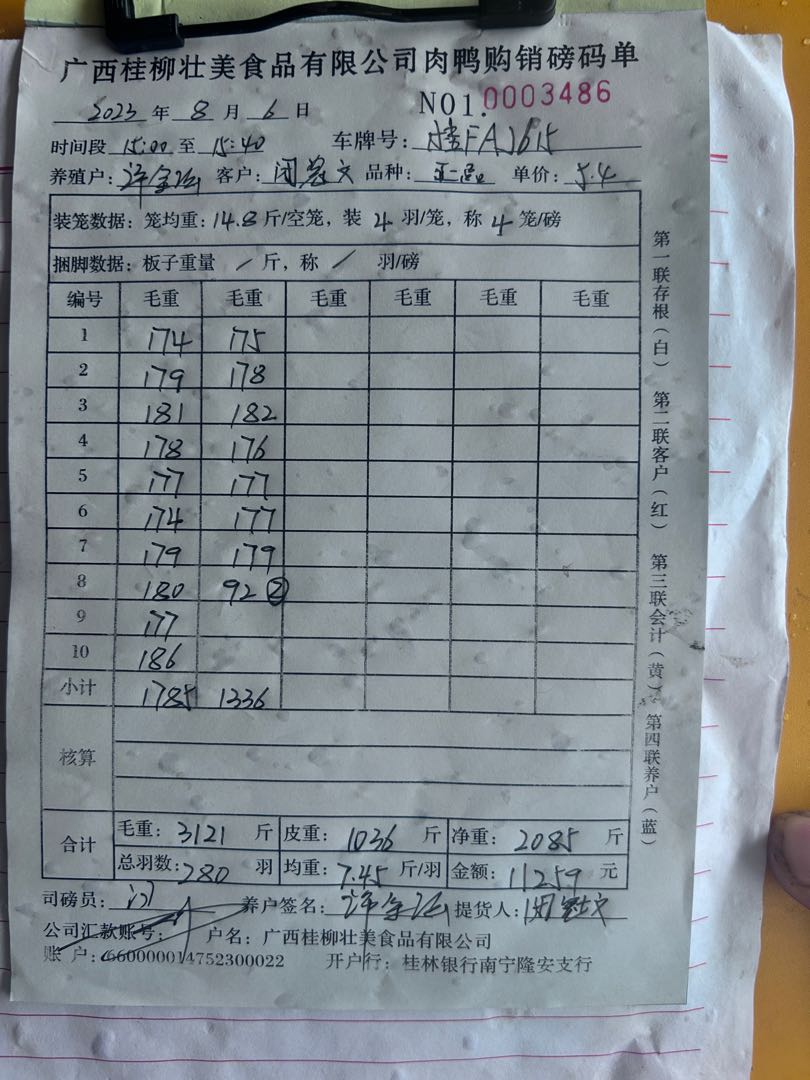 广西桂柳壮美食品有限公司肉鸭购销磅码单
2023 年 8 月 6 日 NO1.0003486
时间段 15:00 至 15:40 车牌号: 桂FA1615
养殖户: 许 客户: 闭 文 品种: 单价: 5.4
装笼数据: 笼均重: 14.8 斤/空笼, 装 4 羽/笼, 称 4 笼/磅
捆脚数据: 板子重量 / 斤, 称 / 羽/磅
编号 毛重 毛重 毛重 毛重 毛重 毛重
1 174 175
2 179 178
3 181 182
4 178 176
5 177 177
6 174 177
7 179 179
8 180 92 ②
9 177
10 186
小计 1785 1336
核算
合计 毛重: 3121 斤 皮重: 1036 斤 净重: 2085 斤
总羽数: 280 羽 均重: 7.45 斤/羽 金额: 11259 元
司磅员: 养户签名: 许 提货人: 闭 文
公司汇款账号: 户名: 广西桂柳壮美食品有限公司
账 户: 660000014752300022 开户行: 桂林银行南宁隆安支行
第一联存根(白) 第二联客户(红) 第三联会计(黄) 第四联养户(蓝)